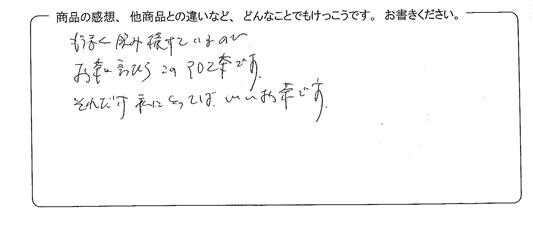 商品の感想、他商品との違いなど、どんなことでもけっこうです。お書きください。
もう永く飲み続けているので
お茶と言ったらこの
それだけ私にとっては、いいお茶です。